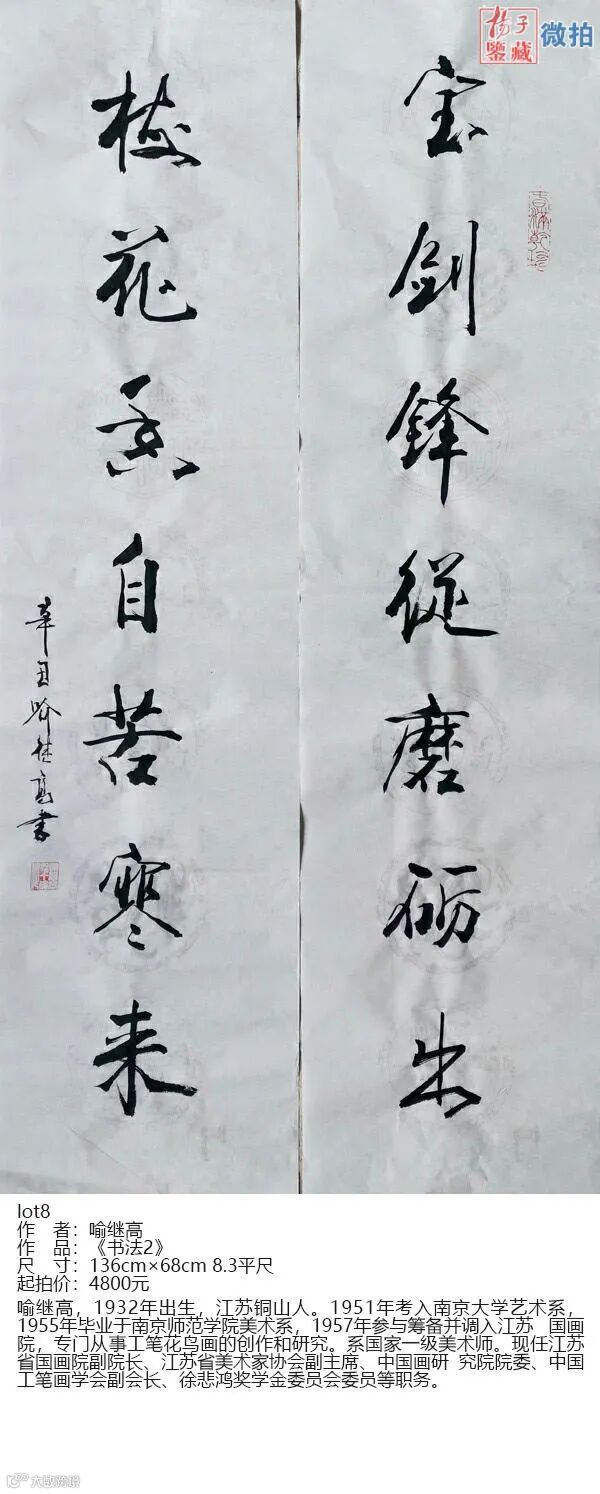 杨子
鉴藏
微拍
宝剑锋從磨砺出
梅花香自苦寒来
辛丑喻继高书
lot8
作 者：喻继高
作 品：《书法2》
尺 寸：136cm×68cm 8.3平尺
起拍价：4800元
喻继高，1932年出生，江苏铜山人。1951年考入南京大学艺术系，
1955年毕业于南京师范学院美术系，1957年参与筹备并调入江苏 国画
院，专门从事工笔花鸟画的创作和研究。系国家一级美术师。现任江苏
省国画院副院长、江苏省美术家协会副主席、中国画研 究院院委、中国
工笔画学会副会长、徐悲鸿奖学金委员会委员等职务。
大数跨境